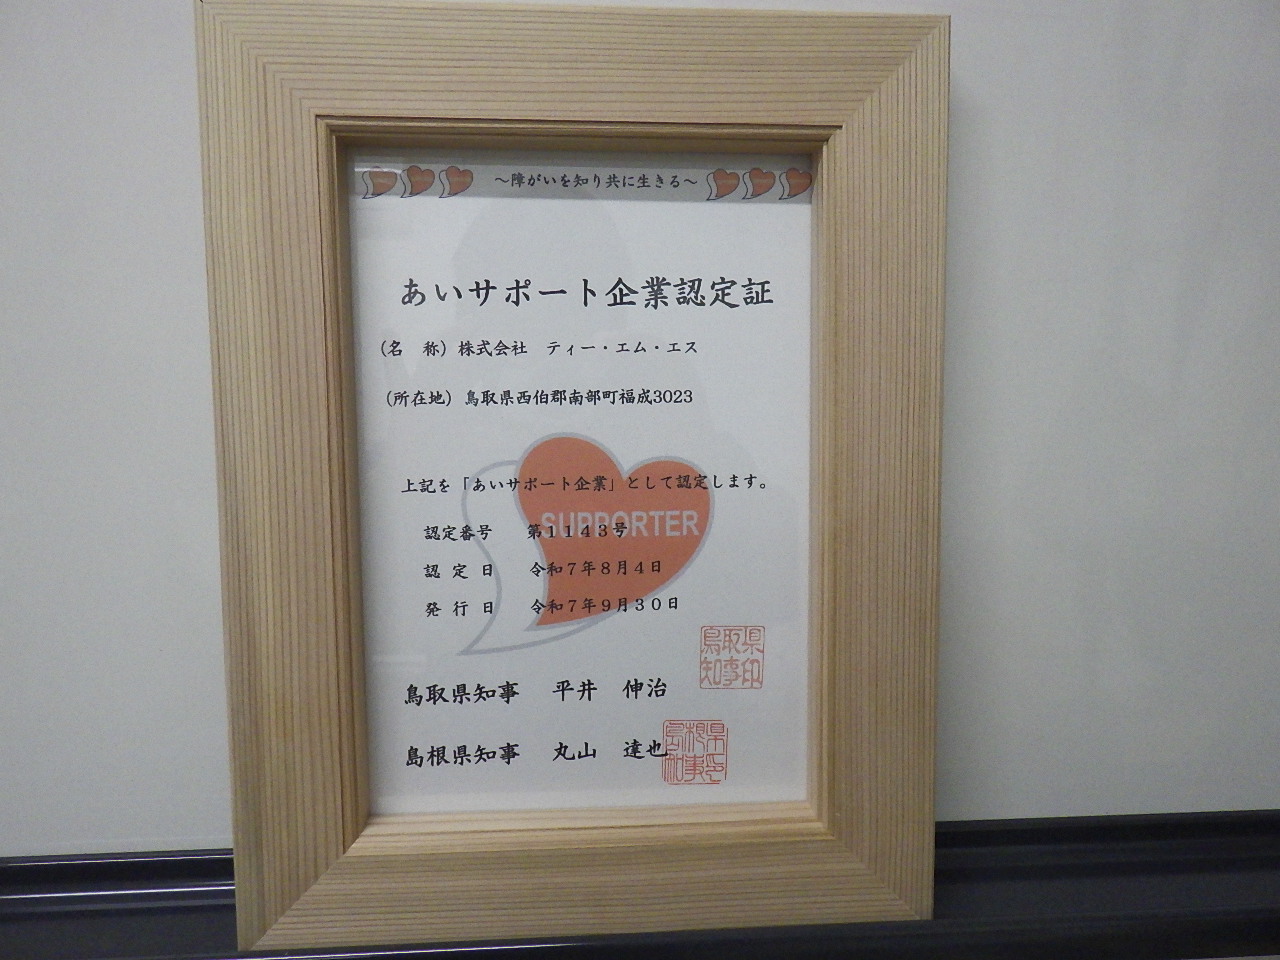 ～障がいを知り共に生きる～
あいサポート企業認定証
（名　称）株式会社　ティー・エム・エス
（所在地）鳥取県西伯郡南部町福成3023
上記を「あいサポート企業」として認定します。
SUPPORTER
認定番号　第１１４３号
認 定 日　令和７年８月４日
発 行 日　令和７年９月３０日
鳥取県知事　平井　伸治
鳥取県知事印
島根県知事　丸山　達也
島根県知事之印